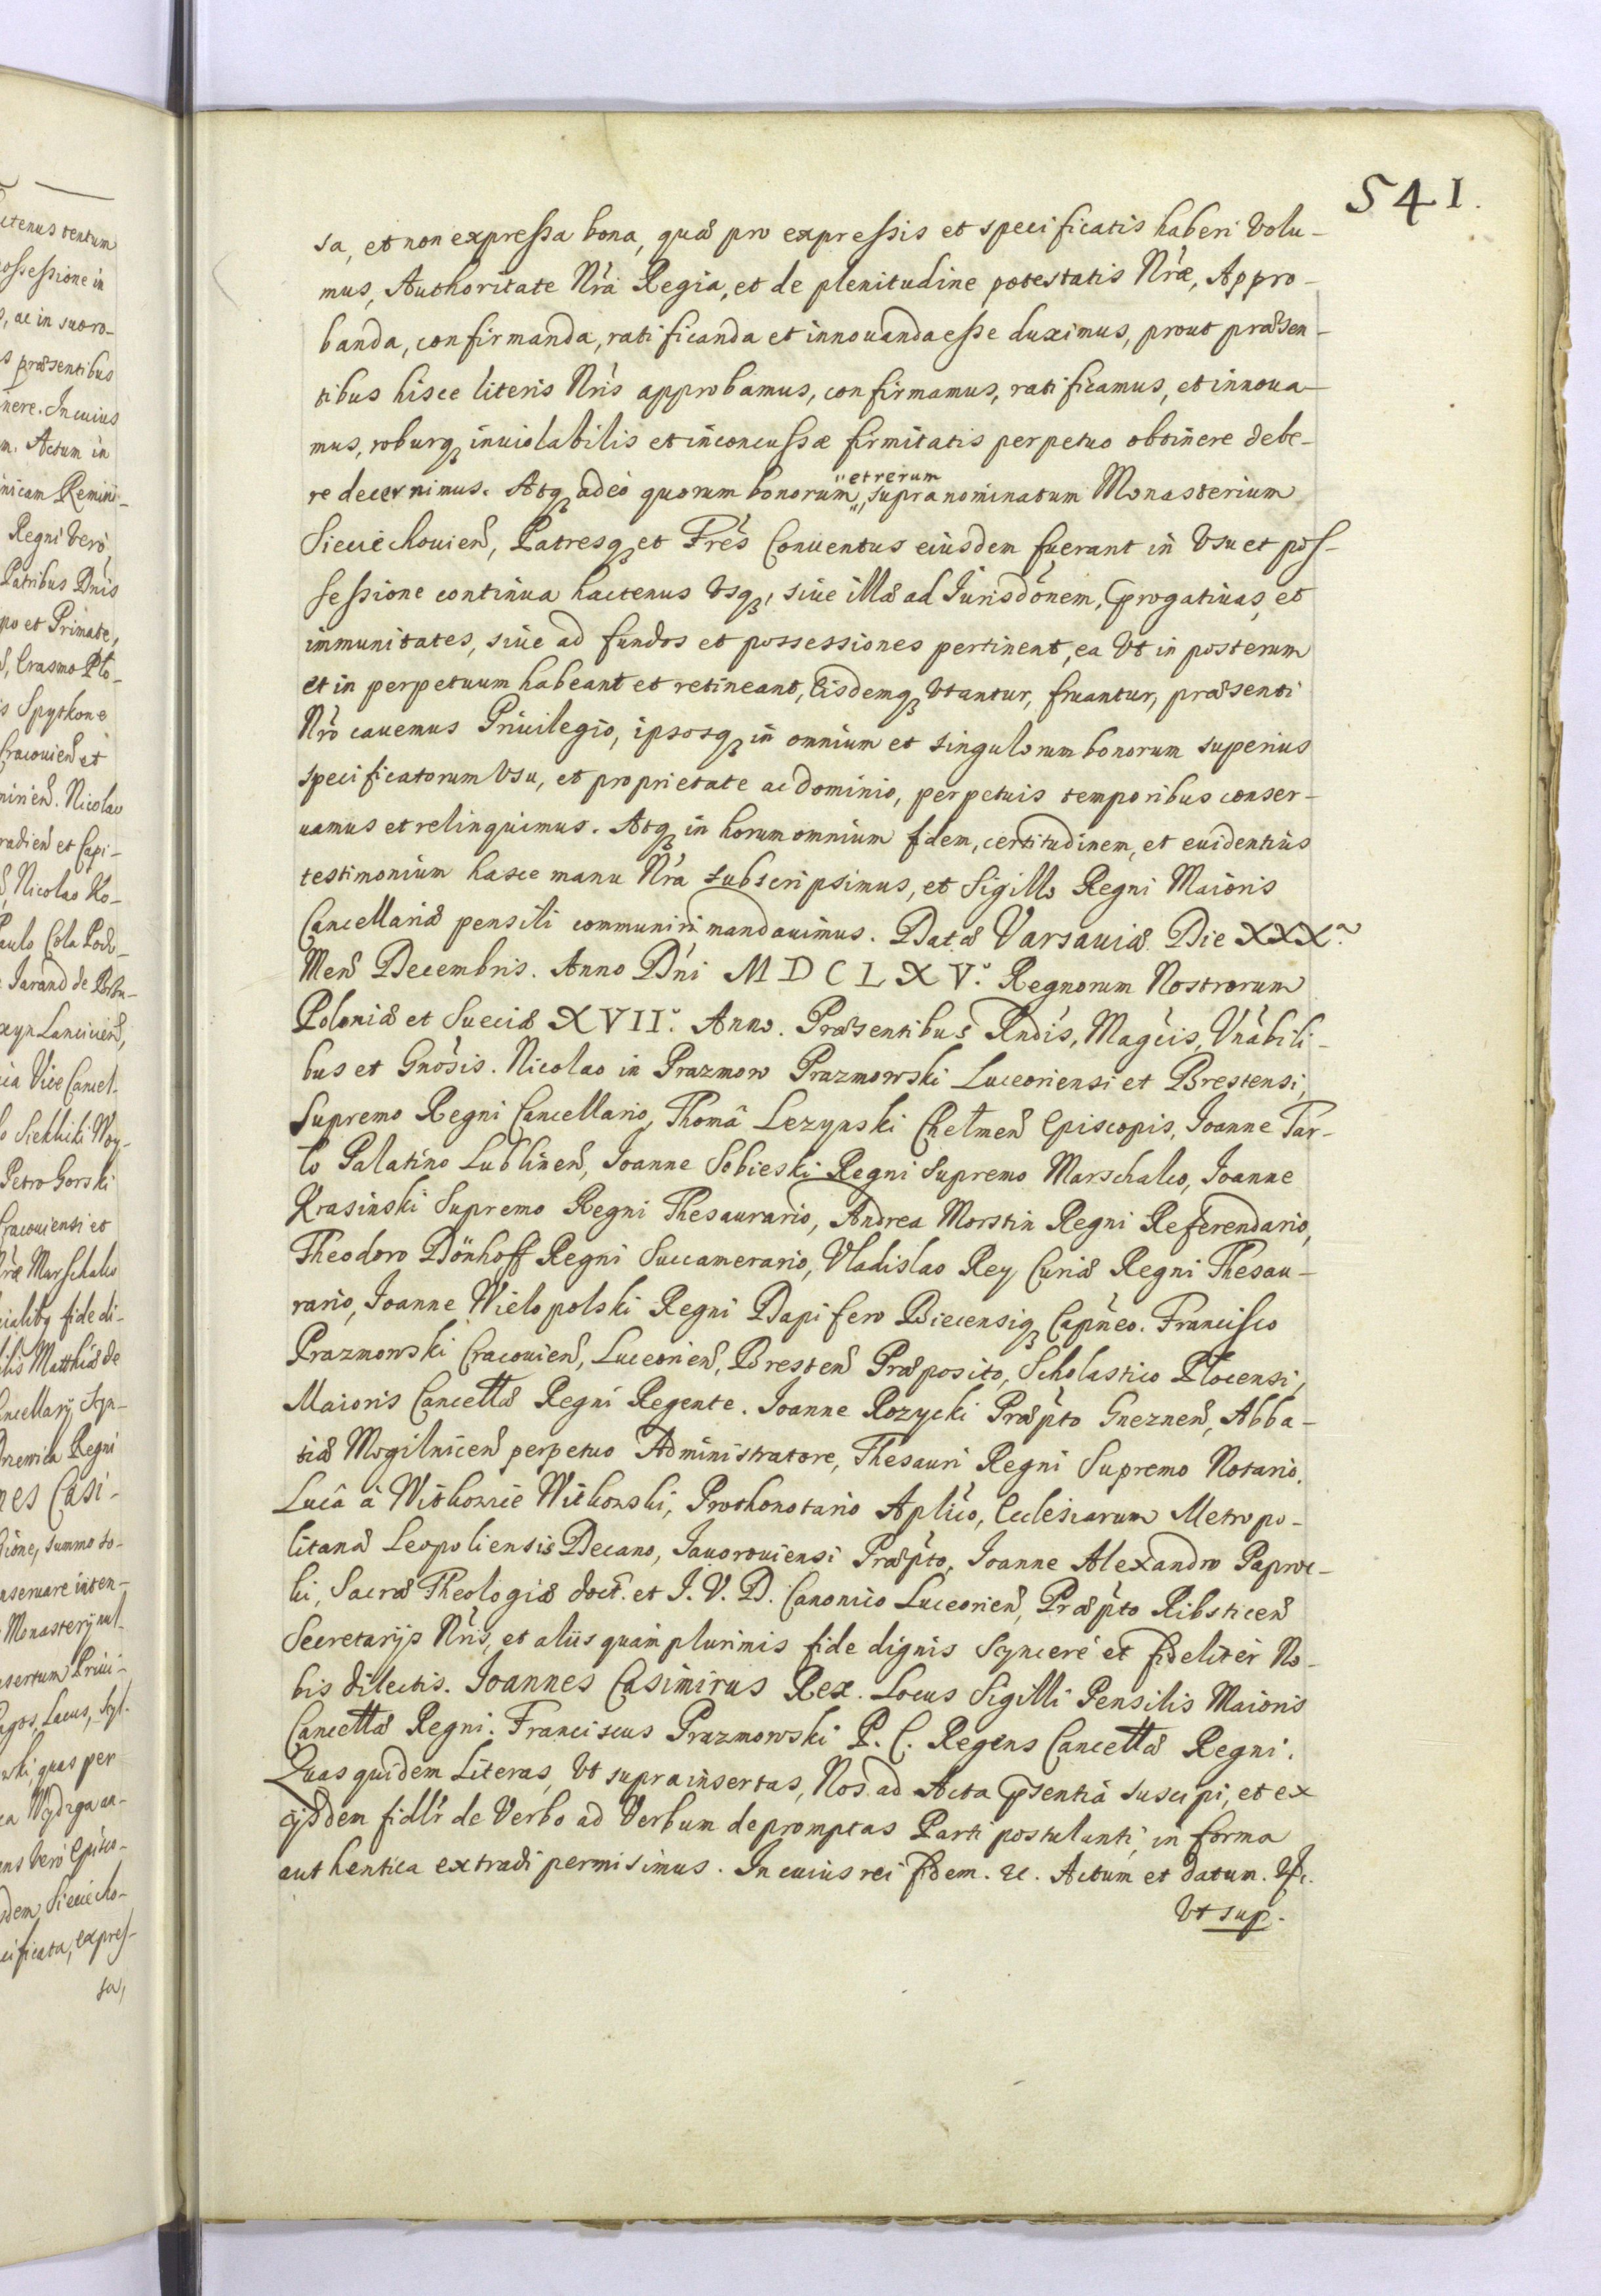 541.
sa, et non expressa bona, quæ pro expressis et specificatis haberi Volu-
mus, Authoritate Nrã Regia, et de plenitudine potestatis Nræ, Appro-
banda, confirmanda, ratificanda et innouanda esse duximus, prout præsen-
tibus hisce literis Nris approbamus, confirmamus, ratificamus, et innoua-
mus, roburq inuiolabilis et inconcussæ firmitatis perpetuo obtinere debe-
re decernimus. Atq adeò quorum bonorum et rerum supra nominatum Monasterium
Sieciechouien, Patresq et Fres Conuentus eiusdem fuerant in Vsu et pos-
sessione continua hactenus Vsq, siue illæ ad Iurisdonem, Prærogatiuas, et
immunitates, siue ad fundos et possessiones pertinent, ea Vt in posterum
et in perpetuum habeant et retineant, Eisdemq Vtantur, fruantur, præsenti
Nro cauemus Priuilegio, ipsosq in omnium et singulorum bonorum superius
specificatorum Vsu, et proprietate ac dominio, perpetuis temporibus conser-
uamus et relinquimus. Atq in horum omnium fidem, certitudinem, et euidentius
testimonium hasce manu Nrã subscripsimus, et Sigillo Regni Maioris
Cancellariæ pensili communiri mandauimus. Datæ Varsauiæ Die XXXa.
Men Decembris. Anno Dni MDCLXVo. Regnorum Nostrorum
Poloniæ et Sueciæ XVIIo. Anno. Præsentibus Rndis, Magcis, Vnabili-
bus et Gnosis. Nicolao in Prazmow Prazmowski Luceoriensi et Brestensi,
Supremo Regni Cancellario, Thomâ Lezynski Chełmen Episcopis, Joanne Tar-
ło Palatino Lublinen, Joanne Sobieski Regni Supremo Marschalco, Joanne
Krasinski Supremo Regni Thesaurario, Andrea Morstin Regni Referendario,
Theodoro Dönhoff Regni Succamerario, Vladislao Rey Curiæ Regni Thesau-
rario, Joanne Wielopolski Regni Dapifero Biecensiq Capneo. Francisco
Prazmowski Cracouien, Luceorien, Bresten Præposito, Scholastico Plocensi,
Maioris Cancellæ Regni Regente. Joanne Rozycki Præpto Gneznen, Abba-
tiæ Mogilnicen perpetuo Administratore, Thesauri Regni Supremo Notario.
Lucâ à Witkowie Witkowski, Prothonotario Aplico, Ecclesiarum Metropo-
litanæ Leopoliensis Decano, Jauorouiensi Præpto, Joanne Alexandro Paproc-
ki, Sacræ Theologiæ doct. et J. V. D. Canonico Luceorien, Præpto Ribsticen
Secretarijs Nris, et aliis quam plurimis fide dignis Syncerè et fideliter No-
bis dilectis. Joannes Casimirus Rex. Locus Sigilli Pensilis Maioris
Cancellæ Regni. Franciscus Prazmowski P. C. Regens Cancellæ Regni.
Quas quidem Literas, Vt supra insertas, Nos ad Acta Præsentia suscipi, et ex
ijsdem fidlr de Verbo ad Verbum depromptas Parti postulanti, in forma
authentica extradi permisimus. In cuius rei fidem. &c. Actum et datum. &c.
Vt sup.